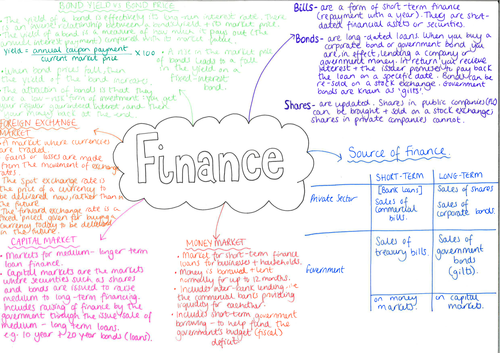 BOND YIELD vs BOND PRICE
The yield of a bond is effectively its long run interest rate. There
is an inverse relationship between a bond's yield + its market price.
The yield of a bond is a measure of how much it pays out (the
annual interest payment) compared with its market price.
yield = annual coupon payment x 100
current market price
A rise in the market price
of bonds leads to a fall
in the yield on a
fixed-interest
bond.
When bond prices fall, then
the yield of the bonds increase.
The attraction of bonds is that they
are a low-risk form of investment. You get
your money back at the end.
Bills- are a form of short-term finance
(repayment with a year). They are short-
dated financial assets or securities.
Bonds- are long-dated loans. When you buy a
corporate bond or government bond you
are in effect lending a company or
government money. In return you receive
interest + the issuer promises to pay back
the loan on a specific date. Bonds can be
re-sold on a stock exchange. Government
bonds are known as 'gilts'.
Shares- are undated. Shares in public companies (PLC)
can be bought + sold on a stock exchange,
shares in private companies cannot.
FOREIGN EXCHANGE
MARKET
A market where currencies
are traded.
Gains or losses are made
from the movement of exchange
rates
The spot exchange rate is
the price of a currency to
be delivered now, rather than
in the future
The forward exchange rate is a
fixed price given for buying a
currency today to be delivered
in the future.
Finance
Source of finance
SHORT-TERM
LONG-TERM
Private Sector
[Bank loans]
Sales of
commercial
bills.
Sales of shares
Sales of
corporate bonds.
Government
Sales of
treasury bills.
Sales of
government
bonds
(gilts).
on money
markets.
on capital
markets.
CAPITAL MARKET
• Markets for medium-longer term
loan finance.
• Capital markets are the markets
where securities such as shares
and bonds are issued to raise
medium to long-term financing.
• Includes raising of finance by the
government through the issue/sale of
medium-long term loans.
e.g. 10 year + 20 year bonds (loans).
MONEY MARKET
• Market for short-term finance
loans for businesses + households.
• Money is borrowed + lent
normally for up to 12 months.
• Includes inter-bank lending i.e.
the commercial banks providing
liquidity for eachother.
• Includes short-term government
borrowing - to help fund the
government's budget (fiscal)
deficit.